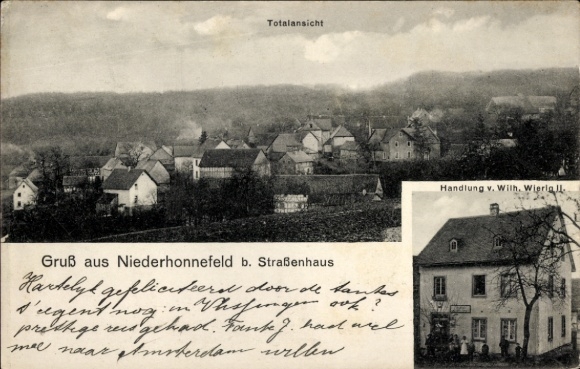 Totalansicht
Handlung v. Wilh. Wierig II.
Gruß aus Niederhonnefeld b. Straßenhaus
Hartelijk gefeliciteerd door de tantes
in Vlissingen ook?
prettige reis gehad. Tante J. had wel
mee naar Amsterdam willen